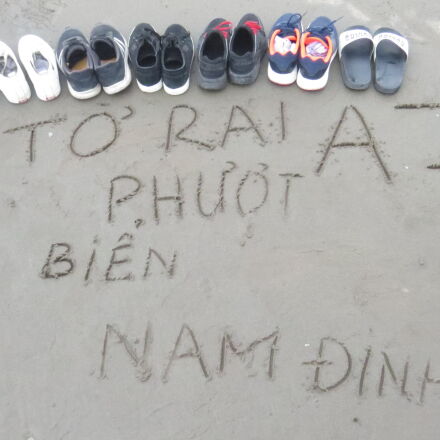 TỜ RAI A
PHƯỢT
BIỂN
NAM ĐỊNH